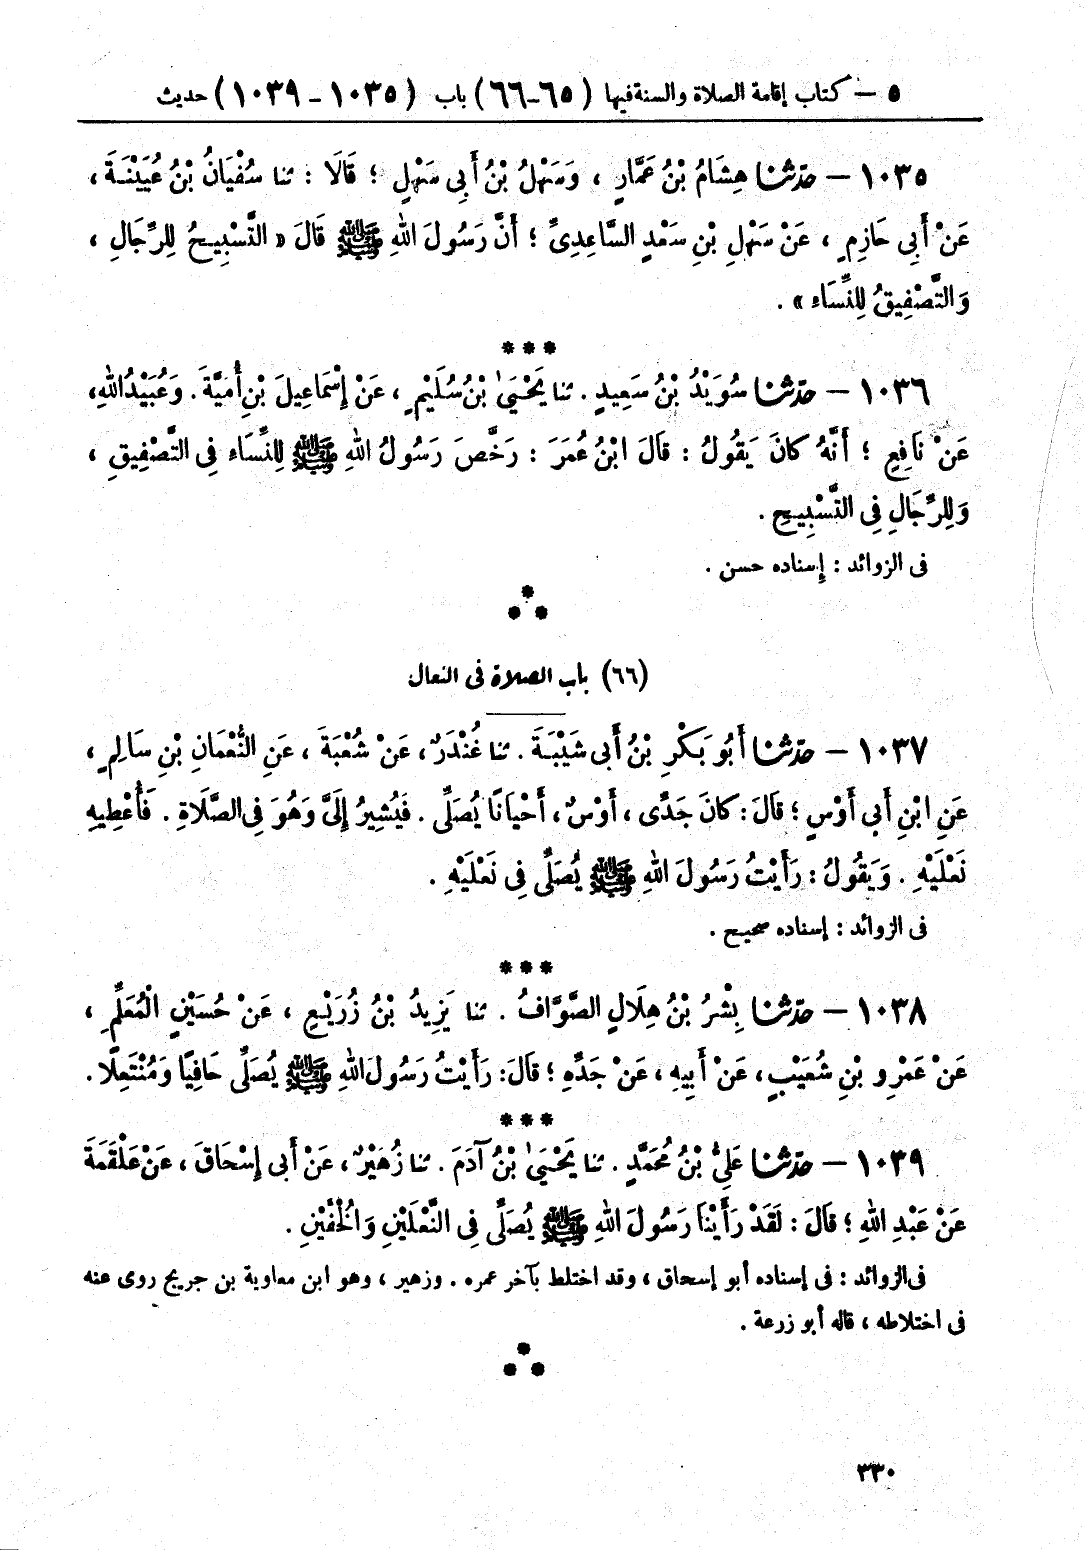 ٥ – كتاب إقامة الصلاة والسنة فيها (٦٥-٦٦) باب (١٠٣٥ - ١٠٣٩) حديث
١٠٣٥ – حَدَّثَنَا هِشَامُ بْنُ عَمَّارٍ ، وَسَهْلُ بْنُ أَبِى سَهْلٍ ؛ قَالَا : ثنا سُفْيَانُ بْنُ عُيَيْنَةَ ،
عَنْ أَبِى حَازِمٍ ، عَنْ سَهْلِ بْنِ سَعْدٍ السَّاعِدِىِّ ؛ أَنَّ رَسُولَ اللهِ ﷺ قَالَ « التَّسْبِيحُ لِلرِّجَالِ ،
وَالتَّصْفِيقُ لِلنِّسَاءِ » .
***
١٠٣٦ – حَدَّثَنَا سُوَيْدُ بْنُ سَعِيدٍ . ثنا يَحْيَىٰ بْنُ سُلَيْمٍ ، عَنْ إِسْمَاعِيلَ بْنِ أُمَيَّةَ . وَعُبَيْدُ اللهِ،
عَنْ نَافِعٍ ؛ أَنَّهُ كَانَ يَقُولُ : قَالَ ابْنُ عُمَرَ : رَخَّصَ رَسُولُ اللهِ ﷺ لِلنِّسَاءِ فِى التَّصْفِيقِ ،
وَلِلرِّجَالِ فِى التَّسْبِيحِ .
فى الزوائد : إسناده حسن .
***
(٦٦) باب الصلاة فى النعال
١٠٣٧ – حَدَّثَنَا أَبُو بَكْرِ بْنُ أَبِى شَيْبَةَ . ثنا غُنْدَرٌ ، عَنْ شُعْبَةَ ، عَنِ النُّعْمَانِ بْنِ سَالِمٍ ،
عَنِ ابْنِ أَبِى أَوْسٍ ؛ قَالَ : كَانَ جَدِّى ، أَوْسٌ ، أَحْيَانًا يُصَلِّى . فَيُشِيرُ إِلَىَّ وَهُوَ فِى الصَّلَاةِ . فَأُعْطِيهِ
نَعْلَيْهِ . وَيَقُولُ : رَأَيْتُ رَسُولَ اللهِ ﷺ يُصَلِّى فِى نَعْلَيْهِ .
فى الزوائد : إسناده صحيح .
***
١٠٣٨ – حَدَّثَنَا بِشْرُ بْنُ هِلَالٍ الصَّوَّافُ . ثنا يَزِيدُ بْنُ زُرَيْعٍ ، عَنْ حُسَيْنٍ الْمُعَلِّمِ ،
عَنْ عَمْرِو بْنِ شُعَيْبٍ ، عَنْ أَبِيهِ ، عَنْ جَدِّهِ ؛ قَالَ: رَأَيْتُ رَسُولَ اللهِ ﷺ يُصَلِّى حَافِيًا وَمُنْتَعِلًا .
***
١٠٣٩ – حَدَّثَنَا عَلِىُّ بْنُ مُحَمَّدٍ . ثنا يَحْيَىٰ بْنُ آدَمَ . ثنا زُهَيْرٌ ، عَنْ أَبِى إِسْحَاقَ ، عَنْ عَلْقَمَةَ
عَنْ عَبْدِ اللهِ ؛ قَالَ : لَقَدْ رَأَيْنَا رَسُولَ اللهِ ﷺ يُصَلِّى فِى النَّعْلَيْنِ وَالْخُفَّيْنِ .
فى الزوائد : فى إسناده أبو إسحاق ، وقد اختلط بآخر عمره . وزهير ، وهو ابن معاوية بن جريج روى عنه
فى اختلاطه ، قاله أبو زرعة .
***
٣٣٠